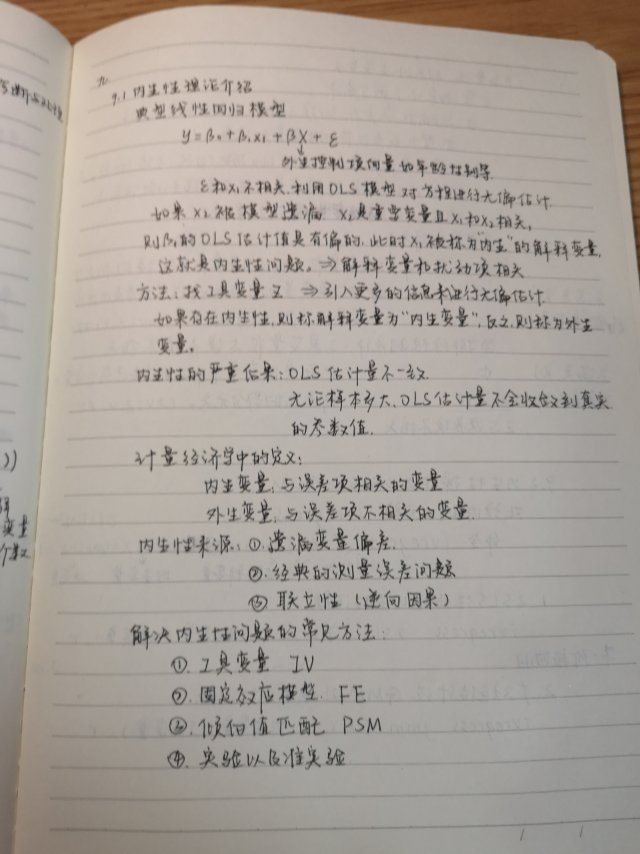 九.
9.1 内生性理论介绍
典型线性回归模型
y = β₀ + β₁x₁ + βX + ε
外生控制项向量 如年龄性别等
ε和x₁不相关、利用OLS模型对方程进行无偏估计.
如果x₂被模型遗漏 x₂是重要变量且x₁和x₂相关,
则β₁的OLS估计值是有偏的, 此时x₁被称为"内生"的解释变量,
这就是内生性问题. ⇒ 解释变量和扰动项相关
方法: 找工具变量Z ⇒ 引入更多的信息来进行无偏估计.
如果存在内生性, 则称解释变量为"内生变量", 反之, 则称为外生
变量.
内生性的严重后果: OLS估计量不一致.
无论样本多大、OLS估计量不会收敛到真实
的参数值.
计量经济学中的定义:
内生变量: 与误差项相关的变量
外生变量: 与误差项不相关的变量
内生性来源: ①. 遗漏变量偏差.
②. 经典的测量误差问题
③ 联立性 (逆向因果)
解决内生性问题的常见方法:
①. 工具变量 IV
②. 固定效应模型. FE
③. 倾向值匹配 PSM
④. 实验以及准实验